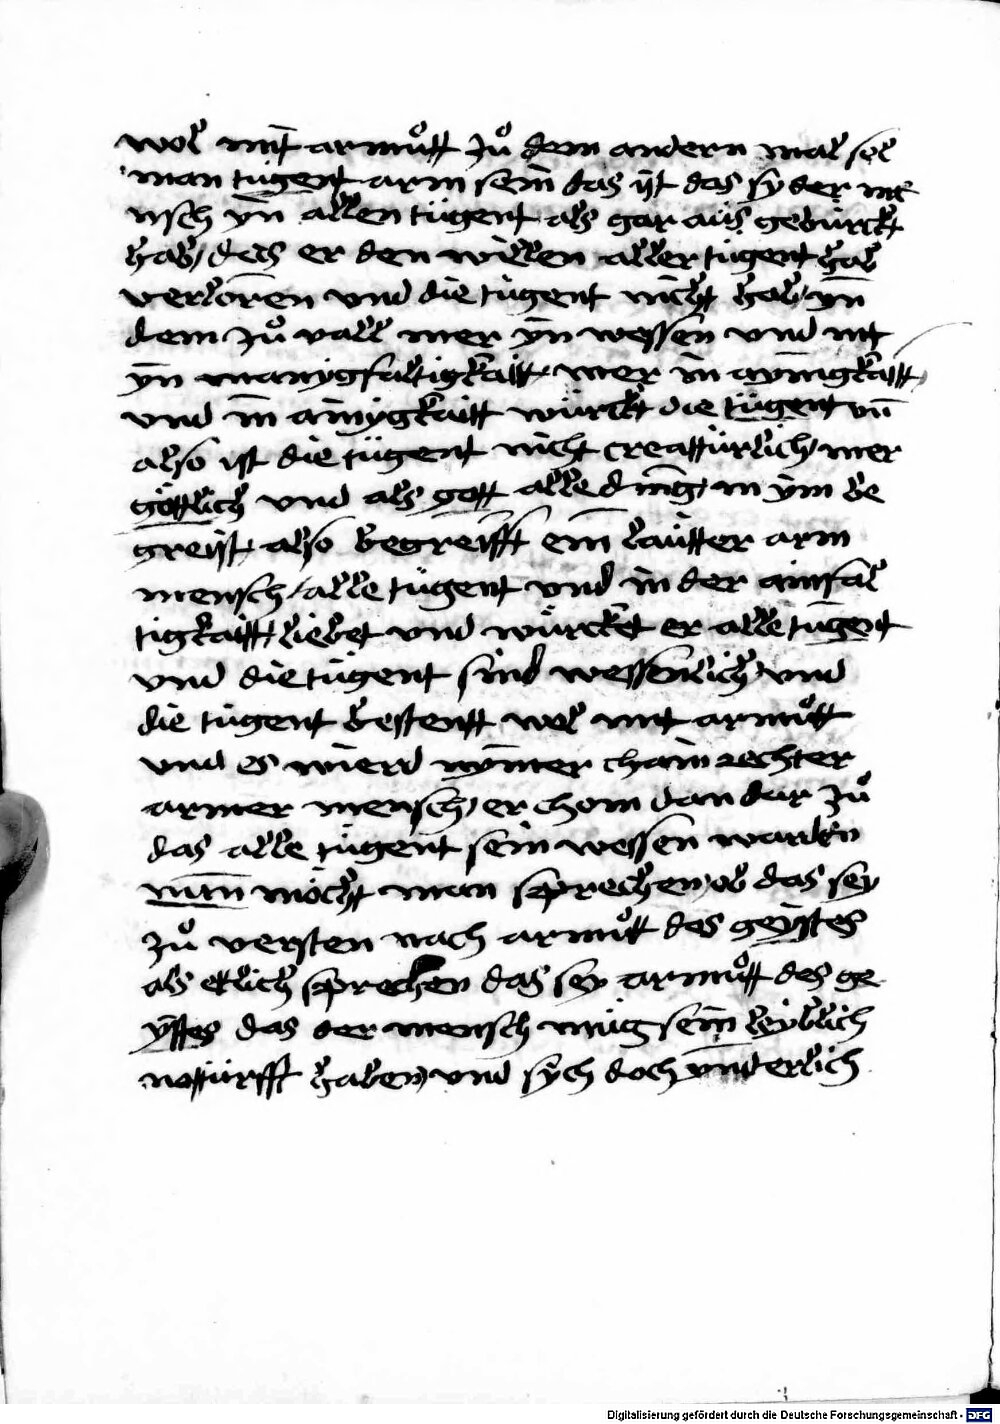 wol mit armůtt zů dem andern mal sol
man tugent arm sein das ist das sy der me
nsch yn allen tügent als gar aus gewürckt
hab / das er den willen aller tugent hab
verloren vnd die tugent nicht hab / yn
dem zů vall mer yn wessen vnd nit
yn manigfaltigkaitt / mer in aynigkaitt /
vnd in ainigkaitt würckt die tügent vn̄
also ist die tügent nicht creattürlich / mer
göttlich vnd als gott alle ding / in ym be
greifft / also begreifft ein lautter arm
mensch / alle tügent vnd in der ainfal
tigkaitt / liebet vnd würcket er alle tugent
vnd die tügent sind wessenlich / vnd
die tugent bestentt wol mit armůtt
vnd es wierd nymer chain rechter
armer mensch / er chom dan dar zů
das alle tugent sein wessen warden
nun möcht man sprechen / ob das sey
zů versten nach armůtt des geystes
als etlich sprechen das sey armůtt des ge
ystes das der mensch müg sein leyblich
notturfft haben / vnd sych doch